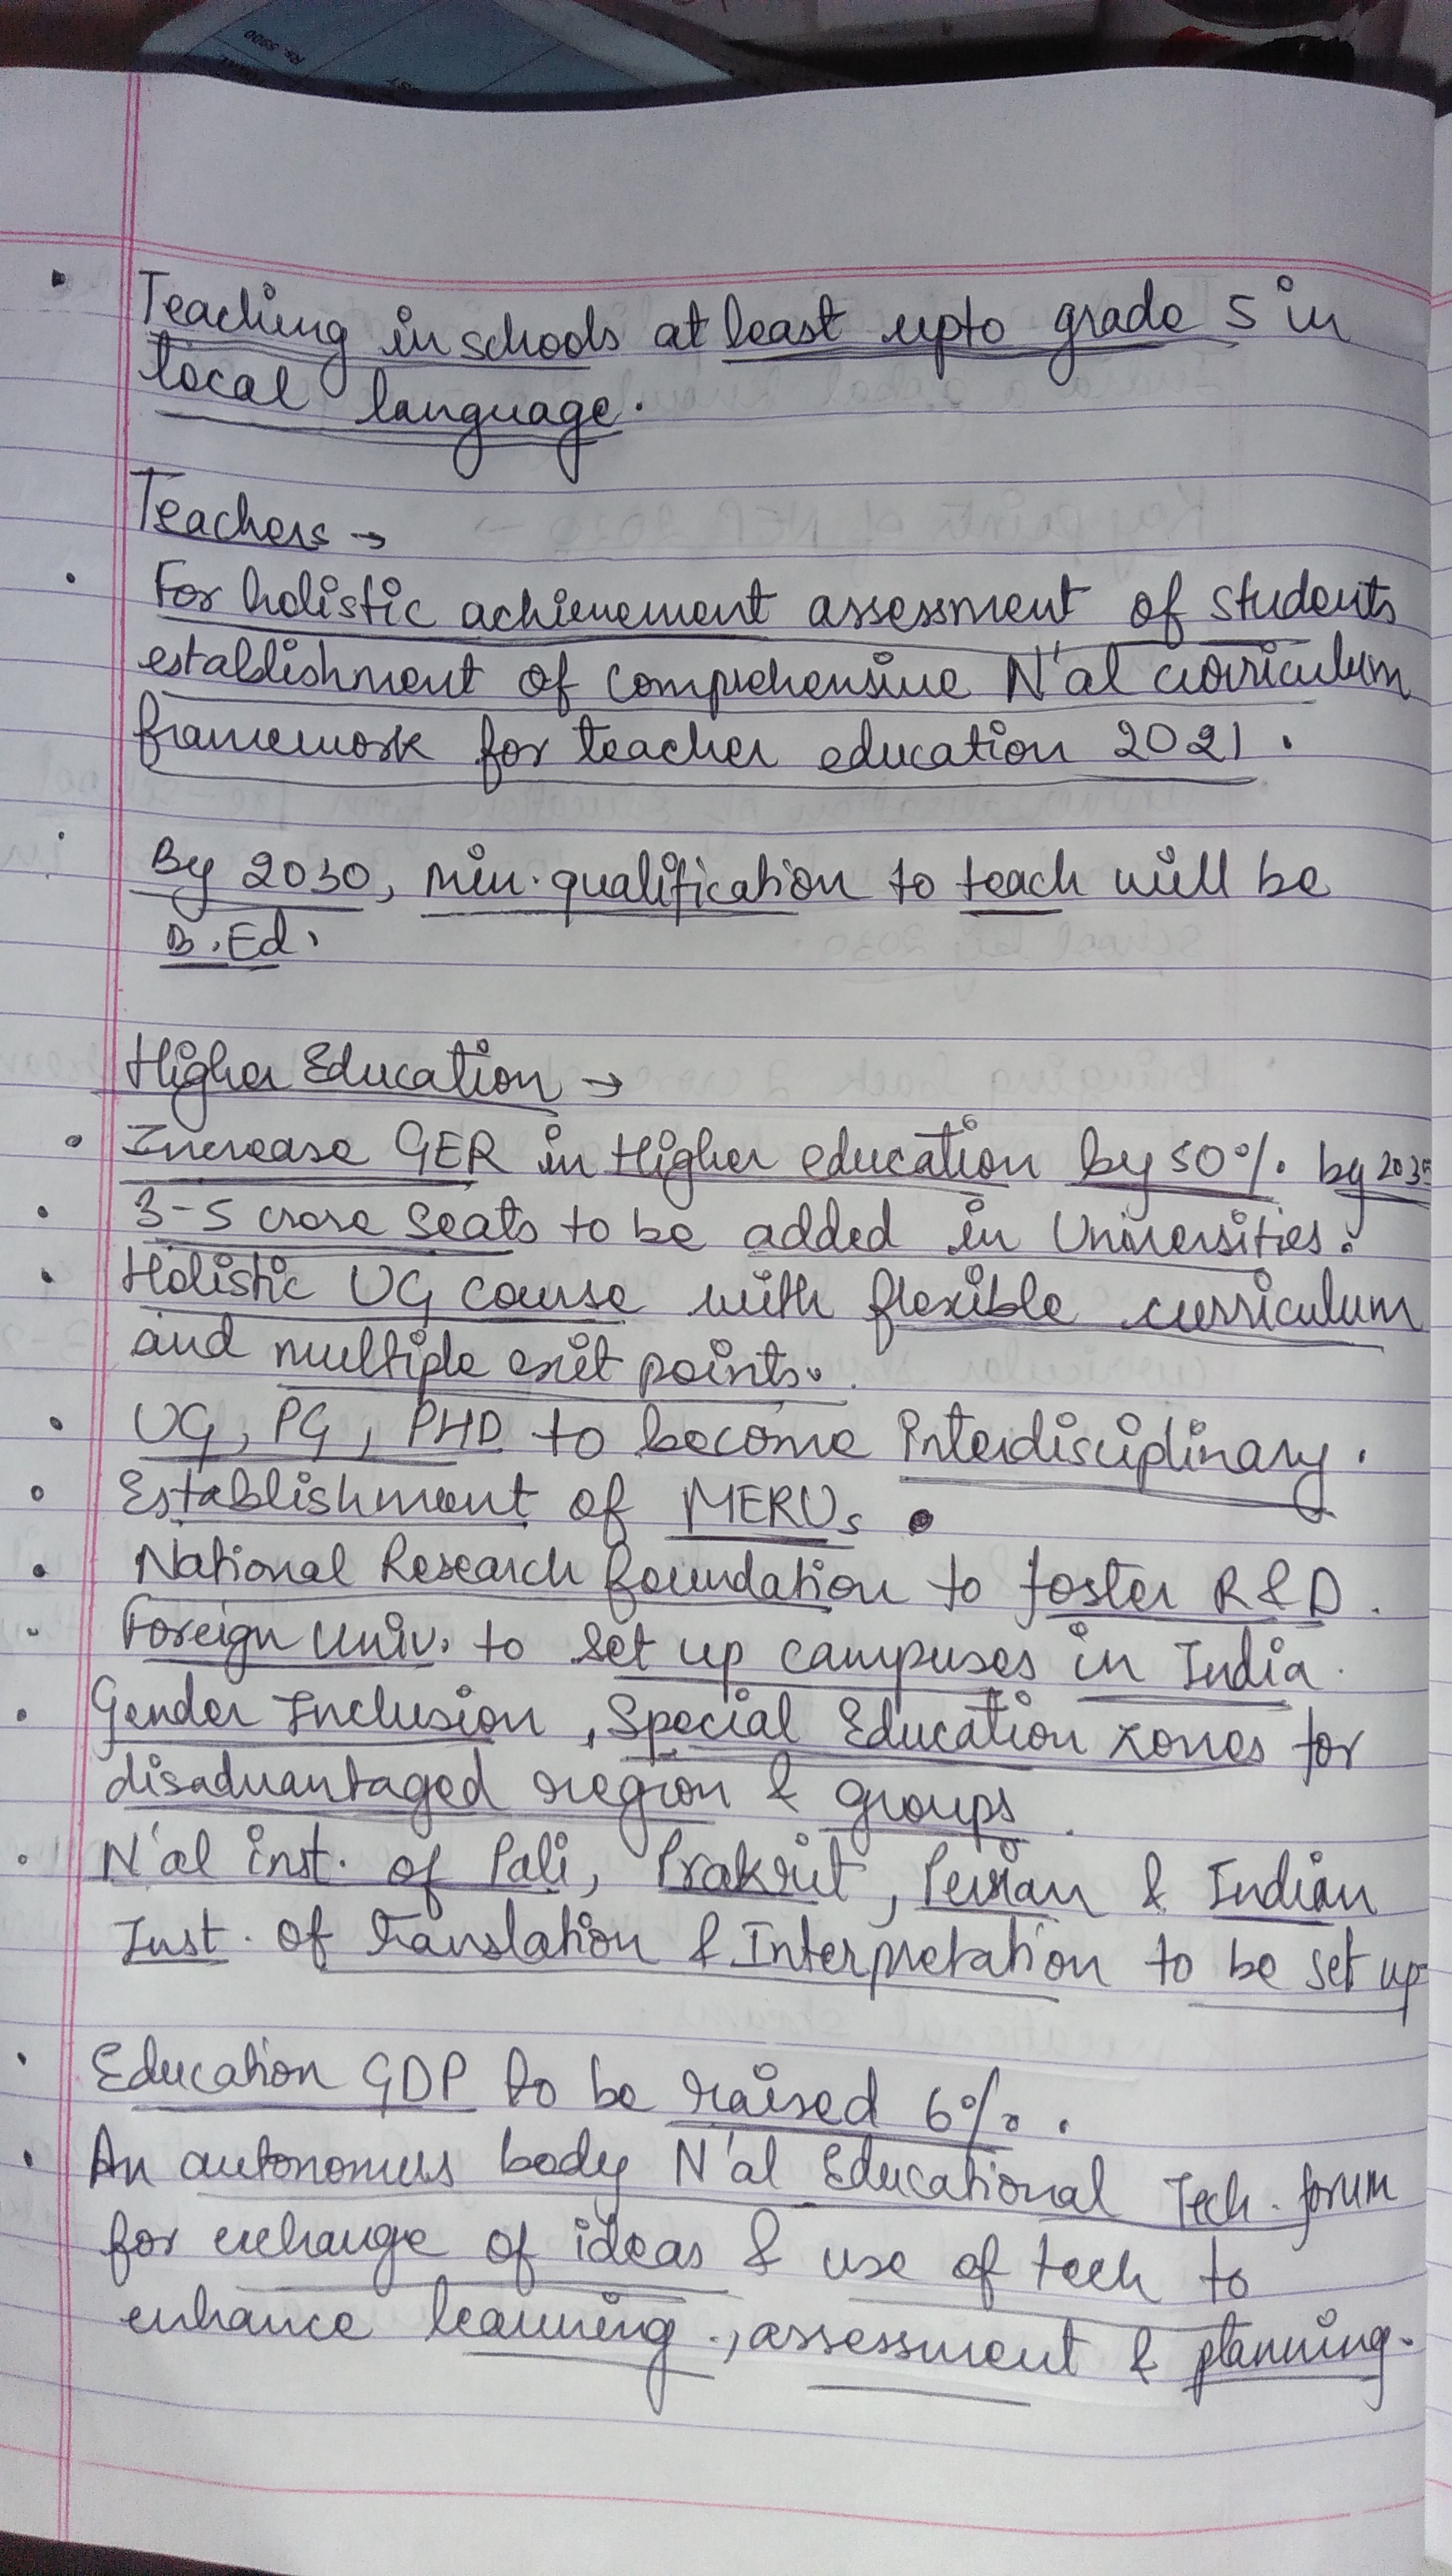 Rs. 5900
• Teaching in schools at least upto grade 5 in
local language.
Teachers →
• For holistic achievement assessment of students
establishment of comprehensive N'al curriculum
framework for teacher education 2021.
• By 2030, min. qualification to teach will be
B.Ed.
Higher Education →
• Increase GER in Higher education by 50%. by 2035
• 3-5 crore seats to be added in Universities.
• Holistic UG course with flexible curriculum
and multiple exit points.
• UG, PG, PHD to become interdisciplinary.
• Establishment of MERUs.
• National Research foundation to foster R&D.
• Foreign Univ. to set up campuses in India.
• Gender Inclusion, Special Education zones for
disadvantaged region & groups.
• N'al inst. of Pali, Prakrit, Persian & Indian
Inst. of translation & Interpretation to be set up
• Education GDP to be raised 6%.
• An autonomus body N'al Educational Tech. forum
for exchange of ideas & use of tech to
enhance learning., assessment & planning.